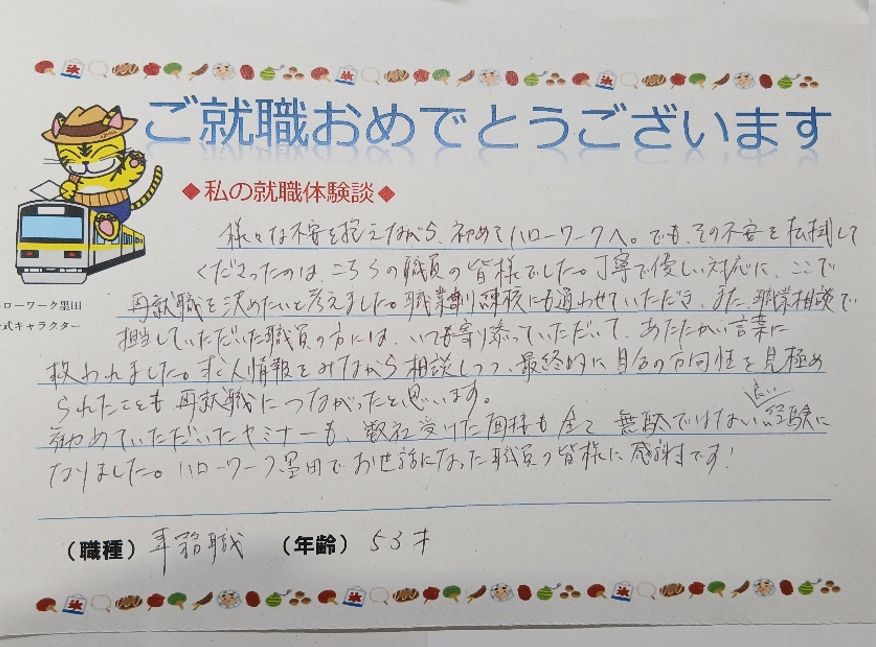 ご就職おめでとうございます
◆私の就職体験談◆
様々な不安を抱えながら、初めてハローワークへ。でも、その不安を払拭して
くださったのは、こちらの職員の皆様でした。丁寧で優しい対応に、ここで
再就職を決めたいと考えました。職業訓練校にも通わせていただき、また、職業相談で
担当していただいた職員の方には、いつも寄り添っていただいて、あたたかい言葉に
救われました。求人情報をみながら相談しつつ、最終的に自分の方向性を見極め
られたことも再就職につながったと思います。
勧めていただいたセミナーも、数社受けた面接も全て無駄ではない良い経験に
なりました。ハローワーク墨田でお世話になった職員の皆様に感謝です!
ローワーク墨田
式キャラクター
(職種)事務職 (年齢)53才